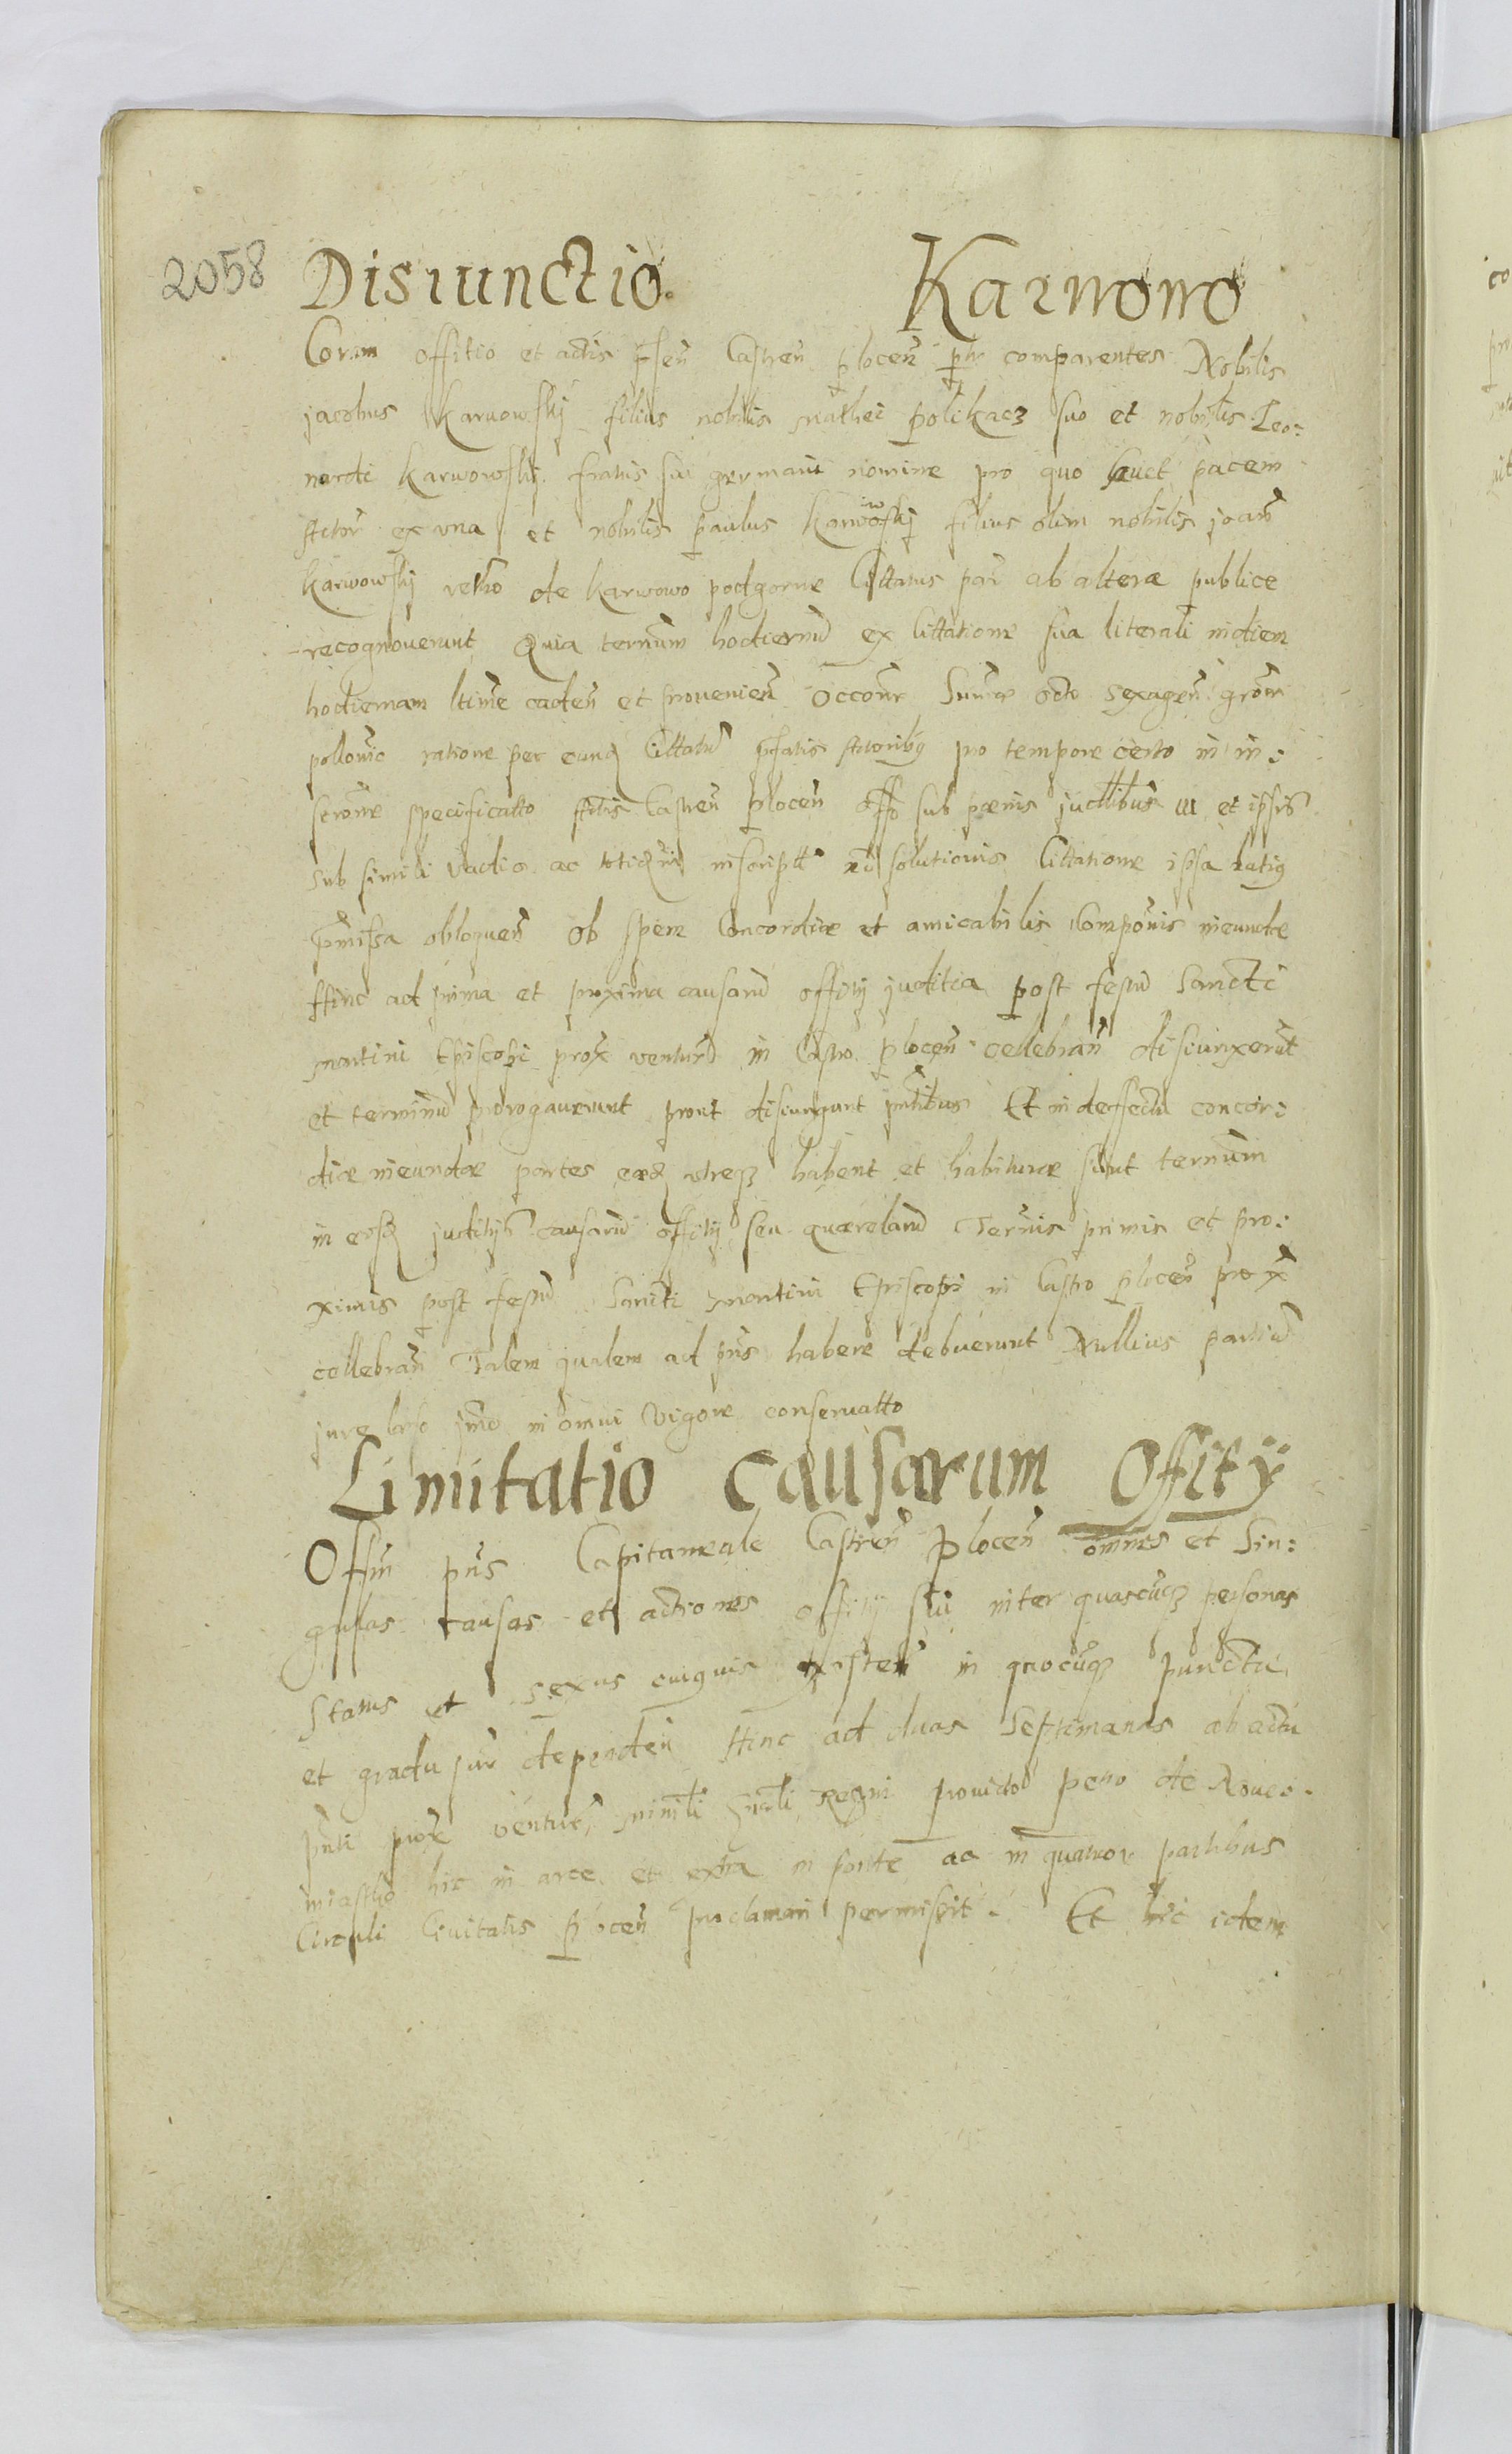 2058 Disiunctio. Karwowo
Coram offitio et actis pñsen Castren plocen ptr comparentes Nobilis
jacobus Karwowskj filius nobilis Mathei polikacz suo et nobilis Leo:
nardi Karwowskj fratris sui germani nomine pro quo pacem
Actor ex una et nobilis paulus Karwowskj filius olim nobilis joan
Karwowskj de Karwowo podgorne Cittatus par ab altera publice
recognoverunt Quia termum hodiernu ex Cittatione sua literali in diem
hodiernam ltime caden et provenien Occone Sume octo sexagen grom
pollonic ratione per eunq Cittatu pfatis Actoribq pro tempore certo in in:
scrone specificatto Actis Castren plocen sub poenis judlibus III et
sub simili vadio ac inscript solutionis Cittatione ipsa latiq
pmissa obloquen Ob spem Concordiae et amicabilis Componis ineundae
Hinc ad prima et proxima causaru offitij juditia post festu Sancti
Martini Episcopi prox venturu in Castro plocen cellebran disiunxerut
et terminu prorogaverunt prout disiungunt pntibus Et in deffectu concor:
diae ineundae partes eaed utreq habent et habiturae sunt termum
in eisd juditijs causaru offitij seu quaerelaru Termis primis et pro:
ximis post festu Sancti Martini Episcopi in Castro plocen prox
cellebran Talem qualem ad pns habere debuerunt Nullius partiu
jure leso jmo in omni vigore conservatto
Limitatio Causarum Offity
Offin pns Capitaneale Castren Plocen omnes et Sin:
gulas causas et actiones offitij sui inter quascuq personas
status et sexus cuiquis existen in quocuq puncta
et gradu jur dependen Hinc ad duas Septimanas ab actu
pnti prox ventur, Minrli gnrali Regni providu petro de Novo.
miastho hic in arce et extra in ponte ac in quatuor partibus
Circuli Civitatis Plocen proclamari permisit. Et hic idem